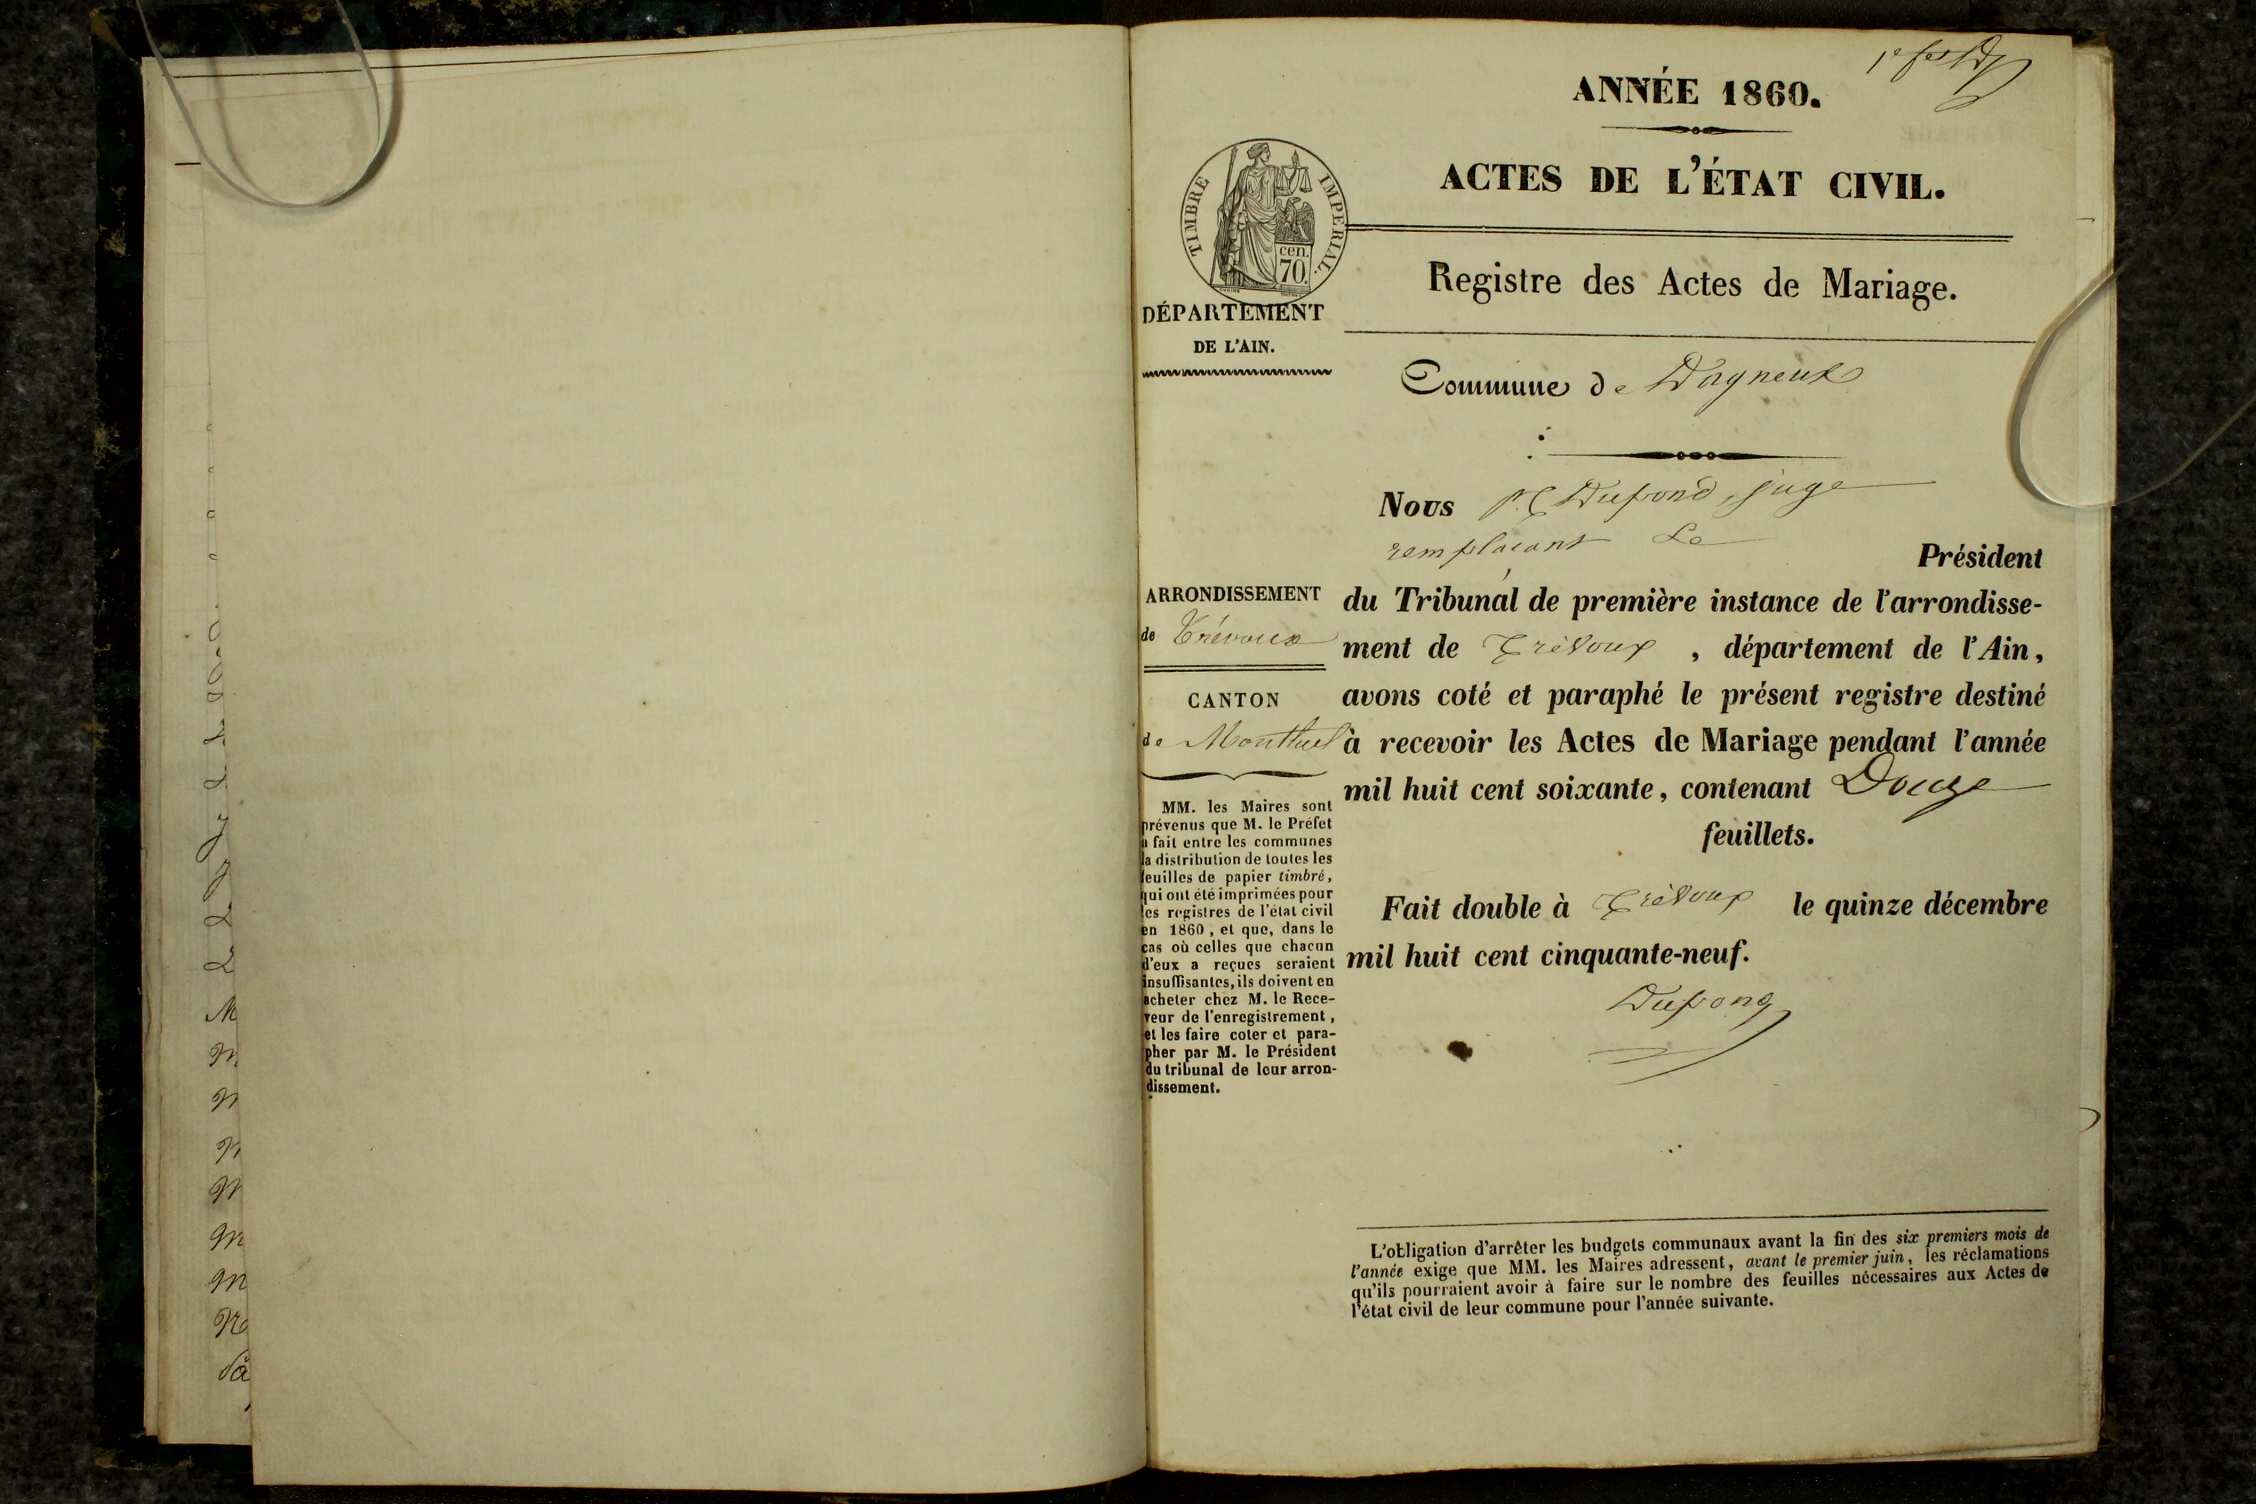 1er f.et
ANNÉE 1860.
ACTES DE L'ÉTAT CIVIL.
Registre des Actes de Mariage.
TIMBRE IMPÉRIAL.
cen.
70.
DÉPARTEMENT
DE L'AIN.
Commune de Dagneux
Nous Dupond, juge
remplacant Le
Président
du Tribunal de première instance de l'arrondisse-
ment de Trévoux, département de l'Ain,
avons coté et paraphé le présent registre destiné
à recevoir les Actes de Mariage pendant l'année
mil huit cent soixante, contenant Douze
feuillets.
Fait double à Trévoux le quinze décembre
mil huit cent cinquante-neuf.
Dupond
ARRONDISSEMENT
de Trévoux
CANTON
de Montluel
MM. les Maires sont
prévenus que M. le Préfet
a fait entre les communes
la distribution de toutes les
feuilles de papier timbré,
qui ont été imprimées pour
les registres de l'état civil
en 1860, et que, dans le
cas où celles que chacun
d'eux a reçues seraient
insuffisantes, ils doivent en
acheter chez M. le Rece-
veur de l'enregistrement,
et les faire coter et para-
pher par M. le Président
du tribunal de leur arron-
dissement.
L'obligation d'arrêter les budgets communaux avant la fin des six premiers mois de
l'année exige que MM. les Maires adressent, avant le premier juin, les réclamations
qu'ils pourraient avoir à faire sur le nombre des feuilles nécessaires aux Actes de
l'état civil de leur commune pour l'année suivante.